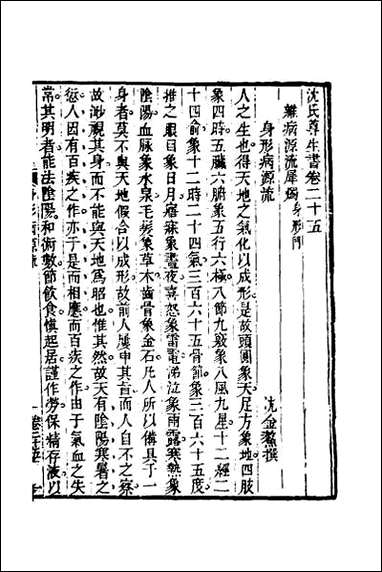 沈氏尊生書卷二十五
雜病源流犀燭身形門
沈金鰲撰
身形病源流
人之生也得天地之氣化以成形是故頭圓象天足方象地四肢
象四時五臟六腑象五行六極八節九竅象八風九星十二經二
十四俞象十二時二十四氣三百六十五骨節象三百六十五度
推之眼目象日月寤寐象晝夜喜怒象雷電涕泣象雨露寒熱象
陰陽血脉象水泉毛髮象草木齒骨象金石凡人所以備具了一
身者莫不與天地假合以成形故前人屢申其言而人自不之察
故渺視其身而不能與天地為昭也惟其然故天有陰陽寒暑之
愆人因有百疾之作亦于是而相應而百疾之作由于氣血之失
常其明者能法陰陽和術數節飲食慎起居謹作勞保精存液以